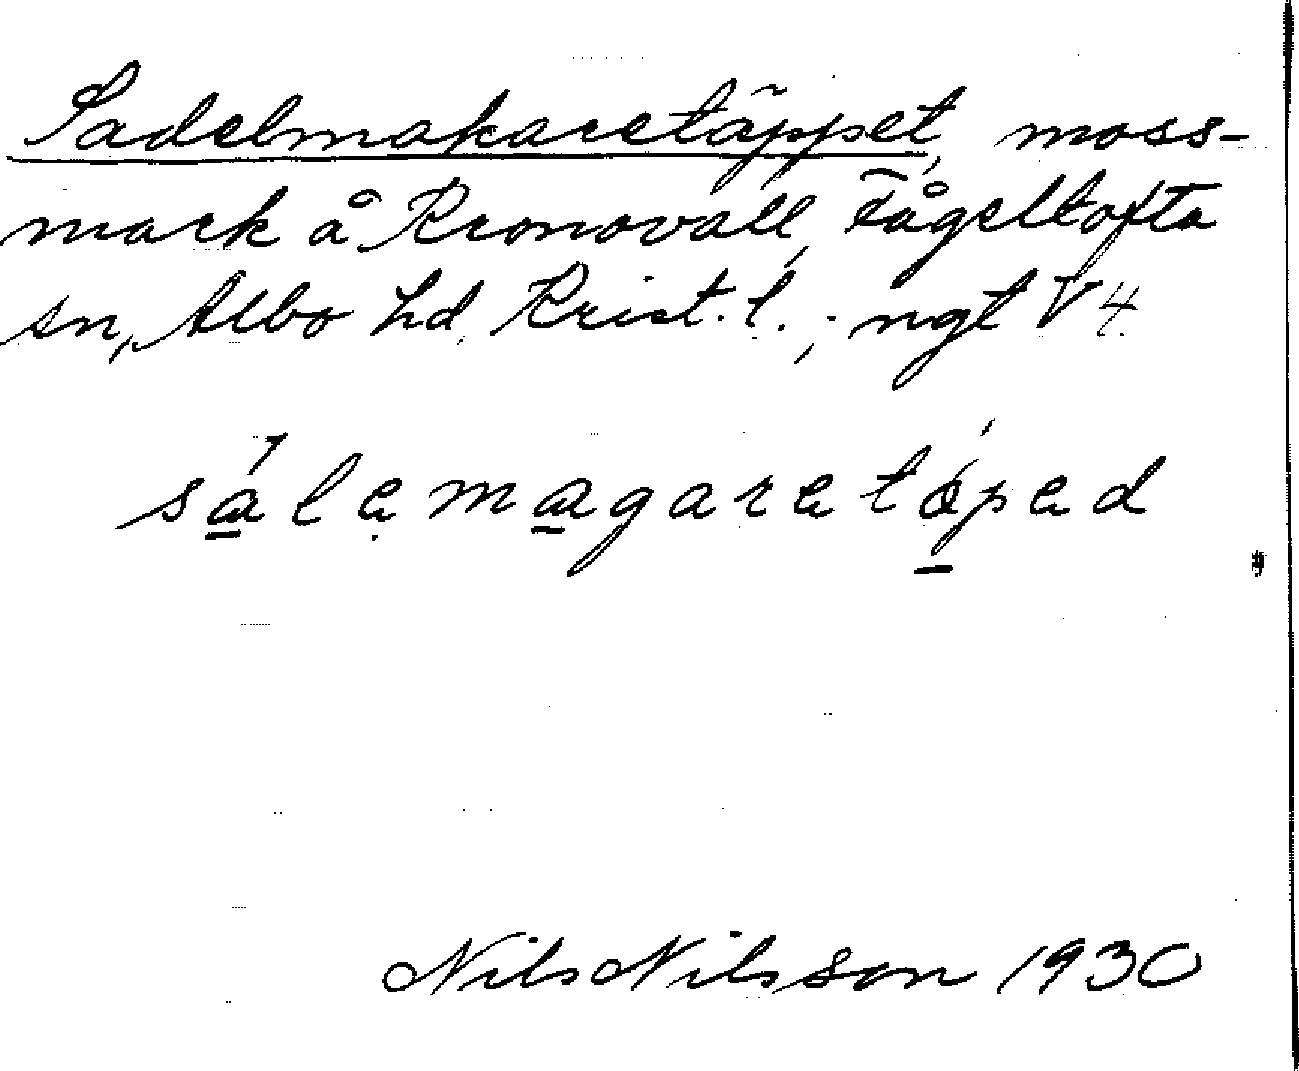 Sadelmakaretäppet, moss-
mark å Kronovall, Fågeltofta
sn, Albo hd, Krist. l., ngt V 4.
sɑlemɑgaretɑ́ped
Nils Nilsson 1930